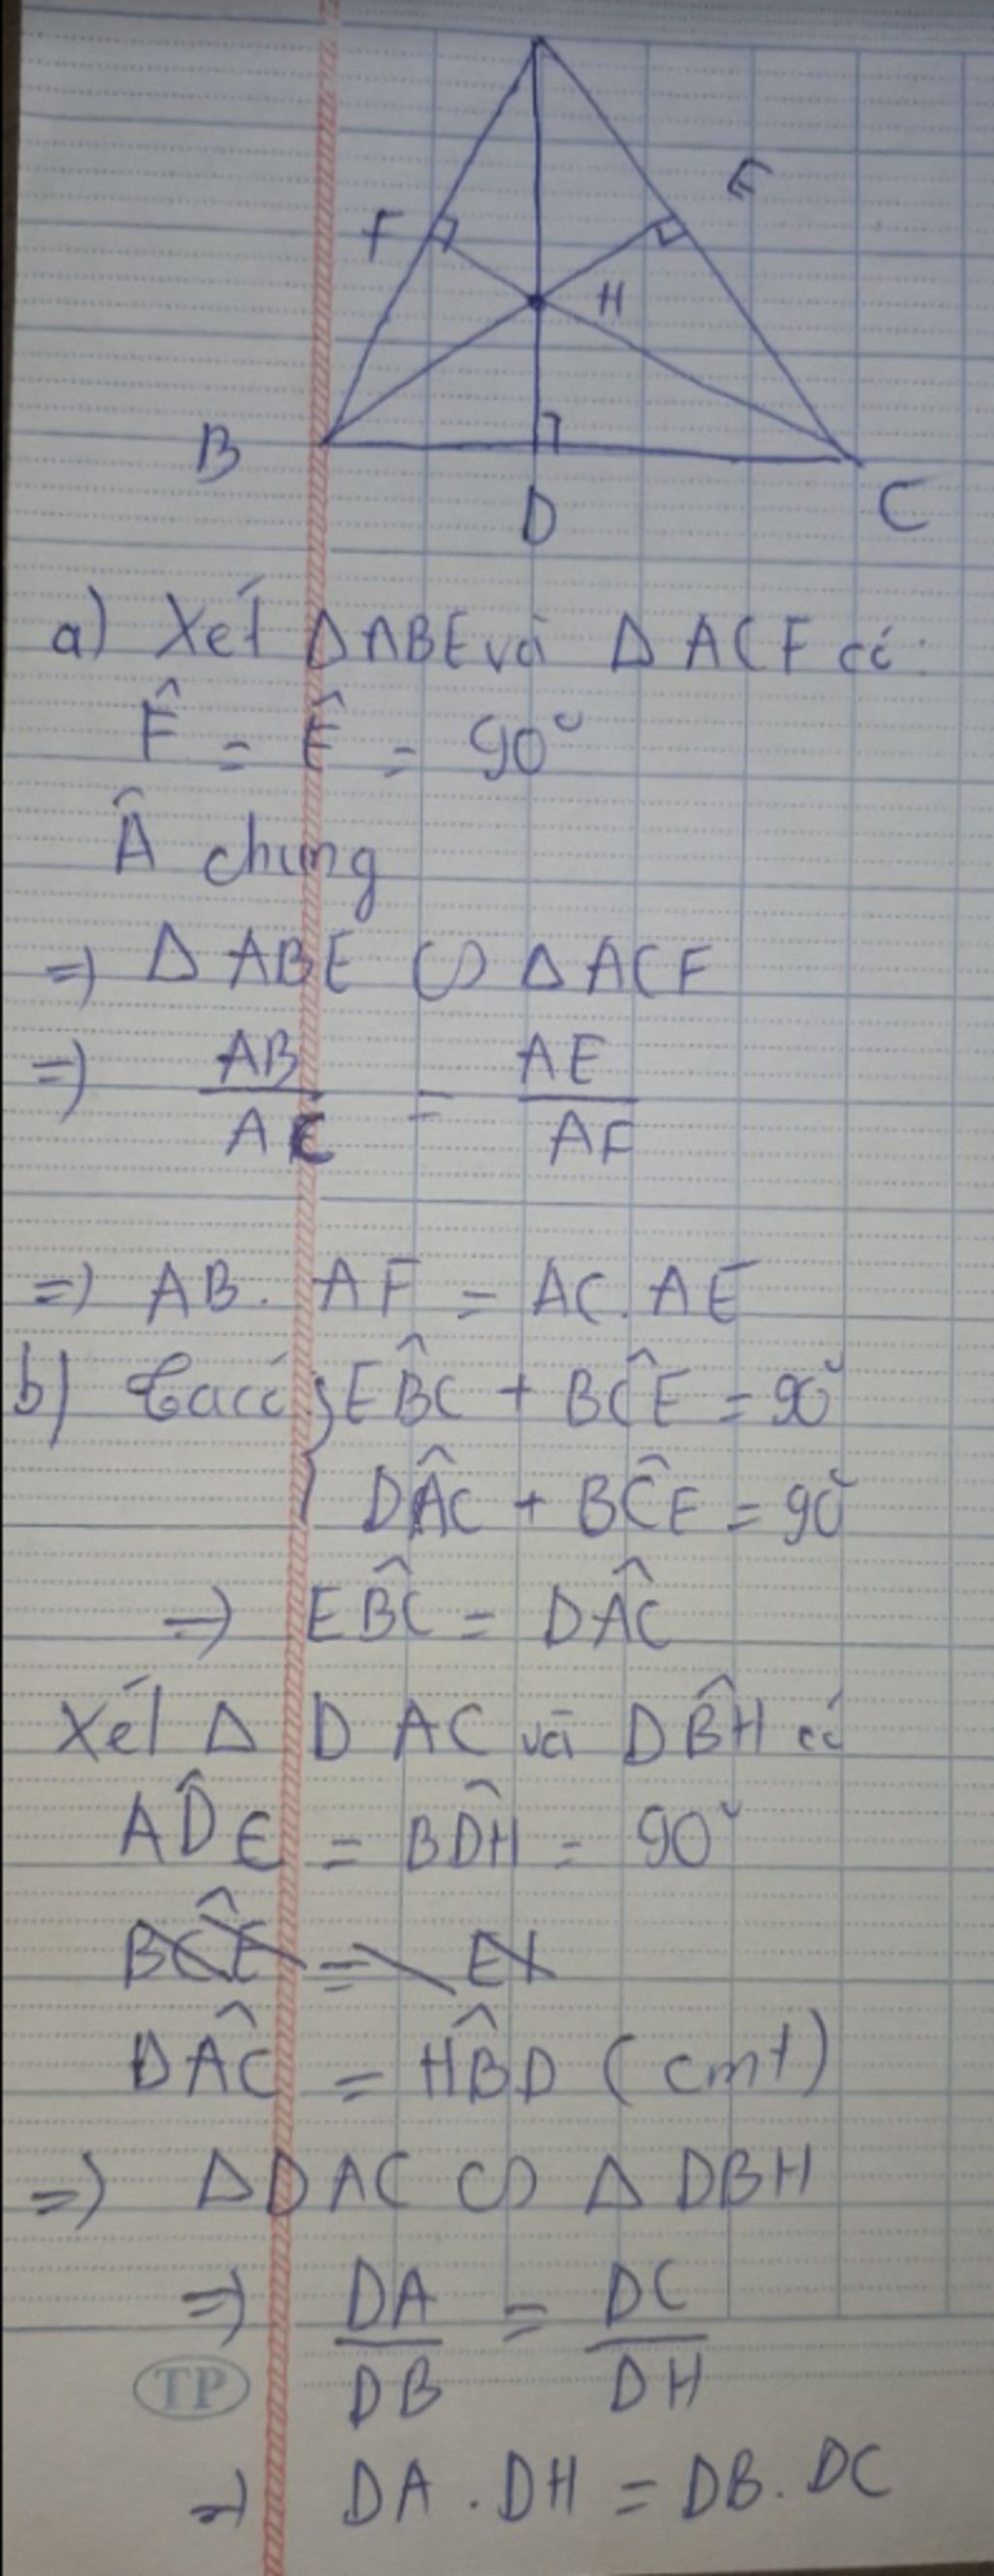 F
E
H
B
D
C
a) Xét ΔABE và ΔACF có:
F̂ = Ê = 90°
Â chung
=> ΔABE ∽ ΔACF
=> AB/AC = AE/AF
=> AB. AF = AC. AE
b) Ta có { EB̂C + BĈE = 90°
DÂC + BĈE = 90°
=> EB̂C = DÂC
Xét Δ DAC và DB̂H có
AD̂C = BD̂H = 90°
DÂC = HB̂D (cmt)
=> ΔDAC ∽ ΔDBH
=> DA/DB = DC/DH
TP
=> DA . DH = DB. DC